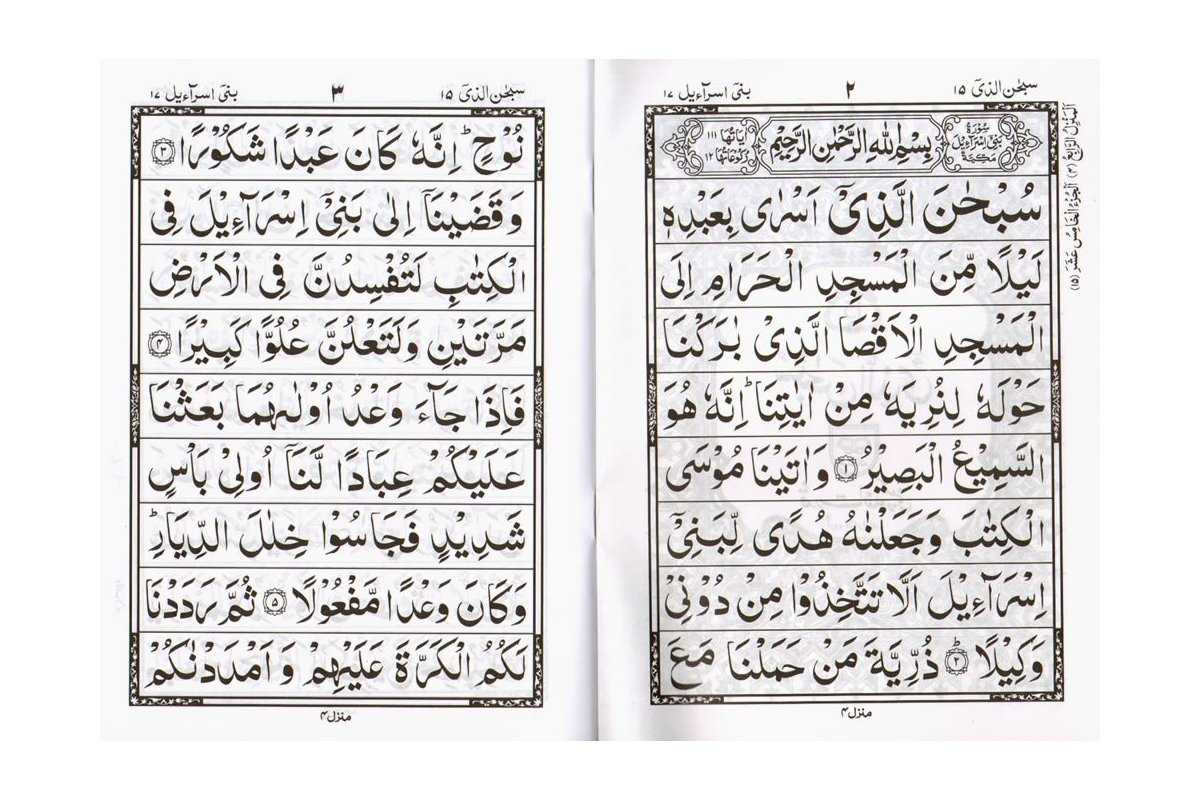 سبحٰن الذیۤ ۱۵ ۲ بنیۤ اسرآءیل ۱۷
سُوْرَةُ بَنِیْۤ اِسْرَآءِیْلَ مَکِّیَّةٌ بِسْمِ اللهِ الرَّحْمٰنِ الرَّحِیْمِ اٰیَاتُهَا ۱۱۱ رُکُوْعَاتُهَا ۱۲
سُبْحٰنَ الَّذِیْۤ اَسْرٰی بِعَبْدِهٖ
لَیْلًا مِّنَ الْمَسْجِدِ الْحَرَامِ اِلَی
الْمَسْجِدِ الْاَقْصَا الَّذِیْ بٰرَکْنَا
حَوْلَهٗ لِنُرِیَهٗ مِنْ اٰیٰتِنَاؕ اِنَّهٗ هُوَ
السَّمِیْعُ الْبَصِیْرُ ۝۱ وَاٰتَیْنَا مُوْسَی
الْکِتٰبَ وَجَعَلْنٰهُ هُدًی لِّبَنِیْۤ
اِسْرَآءِیْلَ اَلَّا تَتَّخِذُوْا مِنْ دُوْنِیْ
وَکِیْلًا ۝۲ؕ ذُرِّیَّةَ مَنْ حَمَلْنَا مَعَ
منزل ۴
اَلْمَنْزِلُ الرَّابِعُ (۴) اَلْجُزْءُ الْخَامِسُ عَشَرَ (۱۵)
سبحٰن الذیۤ ۱۵ ۳ بنیۤ اسرآءیل ۱۷
نُوْحٍؕ اِنَّهٗ کَانَ عَبْدًا شَکُوْرًا ۝۳
وَقَضَیْنَاۤ اِلٰی بَنِیْۤ اِسْرَآءِیْلَ فِی
الْکِتٰبِ لَتُفْسِدُنَّ فِی الْاَرْضِ
مَرَّتَیْنِ وَلَتَعْلُنَّ عُلُوًّا کَبِیْرًا ۝۴
فَاِذَا جَآءَ وَعْدُ اُوْلٰىهُمَا بَعَثْنَا
عَلَیْکُمْ عِبَادًا لَّنَاۤ اُولِیْ بَاْسٍ
شَدِیْدٍ فَجَاسُوْا خِلٰلَ الدِّیَارِؕ
وَکَانَ وَعْدًا مَّفْعُوْلًا ۝۵ ثُمَّ رَدَدْنَا
لَکُمُ الْکَرَّةَ عَلَیْهِمْ وَاَمْدَدْنٰکُمْ
منزل ۴